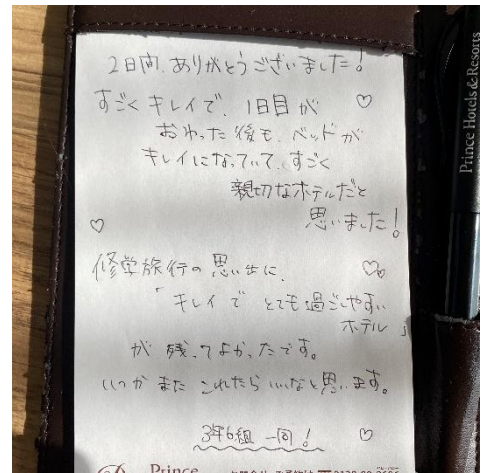 2日間、ありがとうございました!
すごくキレイで、1日目が
おわった後も、ベッドが
キレイになっていて、すごく
親切なホテルだと
思いました!
修学旅行の思い出に、
「キレイでとても過ごしやすい
ホテル」
が残ってよかったです。
いつかまたこれたらいいなと思います。
3年6組一同!
Prince
Prince Hotels & Resorts